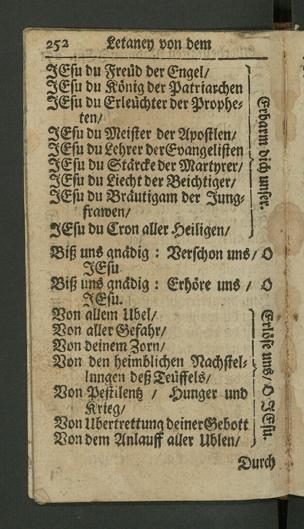 252 Letaney von dem
JEsu du Freüd der Engel/
JEsu du König der Patriarchen
JEsu du Erleüchter der Prophe-
ten/
JEsu du Meister der Apostlen/
JEsu du Lehrer der Evangelisten
JEsu du Stärcke der Martyrer/
JEsu du Liecht der Beichtiger/
JEsu du Bräutigam der Jung-
frawen/
JEsu du Cron aller Heiligen/
Erbarm dich unser.
Biß uns gnädig : Verschon uns/ O
JEsu
Biß uns gnädig : Erhöre uns / O
JEsu.
Von allem Ubel/
Von aller Gefahr/
Von deinem Zorn/
Von den heimblichen Nachstel-
lungen deß Teüffels/
Von Pestilentz / Hunger und
Krieg/
Von Ubertrettung deiner Gebott
Von dem Anlauff aller Ublen/
Erlöse uns/ O JEsu.
Durch